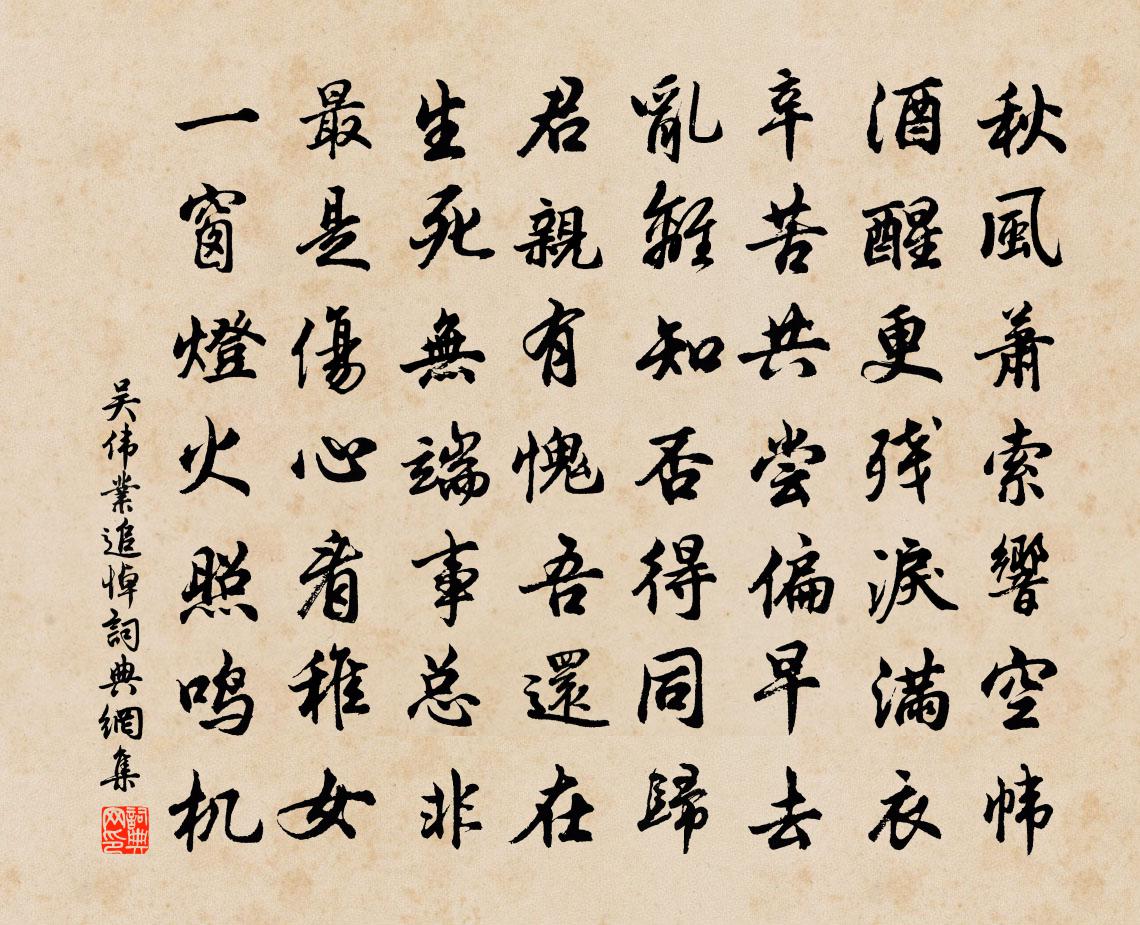 秋風蕭索響空幃
酒醒更残淚滿衣
辛苦共尝偏早去
亂離知否得同歸
君親有愧吾還在
生死無端事总非
最是傷心看稚女
一窗燈火照鸣机
吴伟業追悼詞典網集
詞典網印